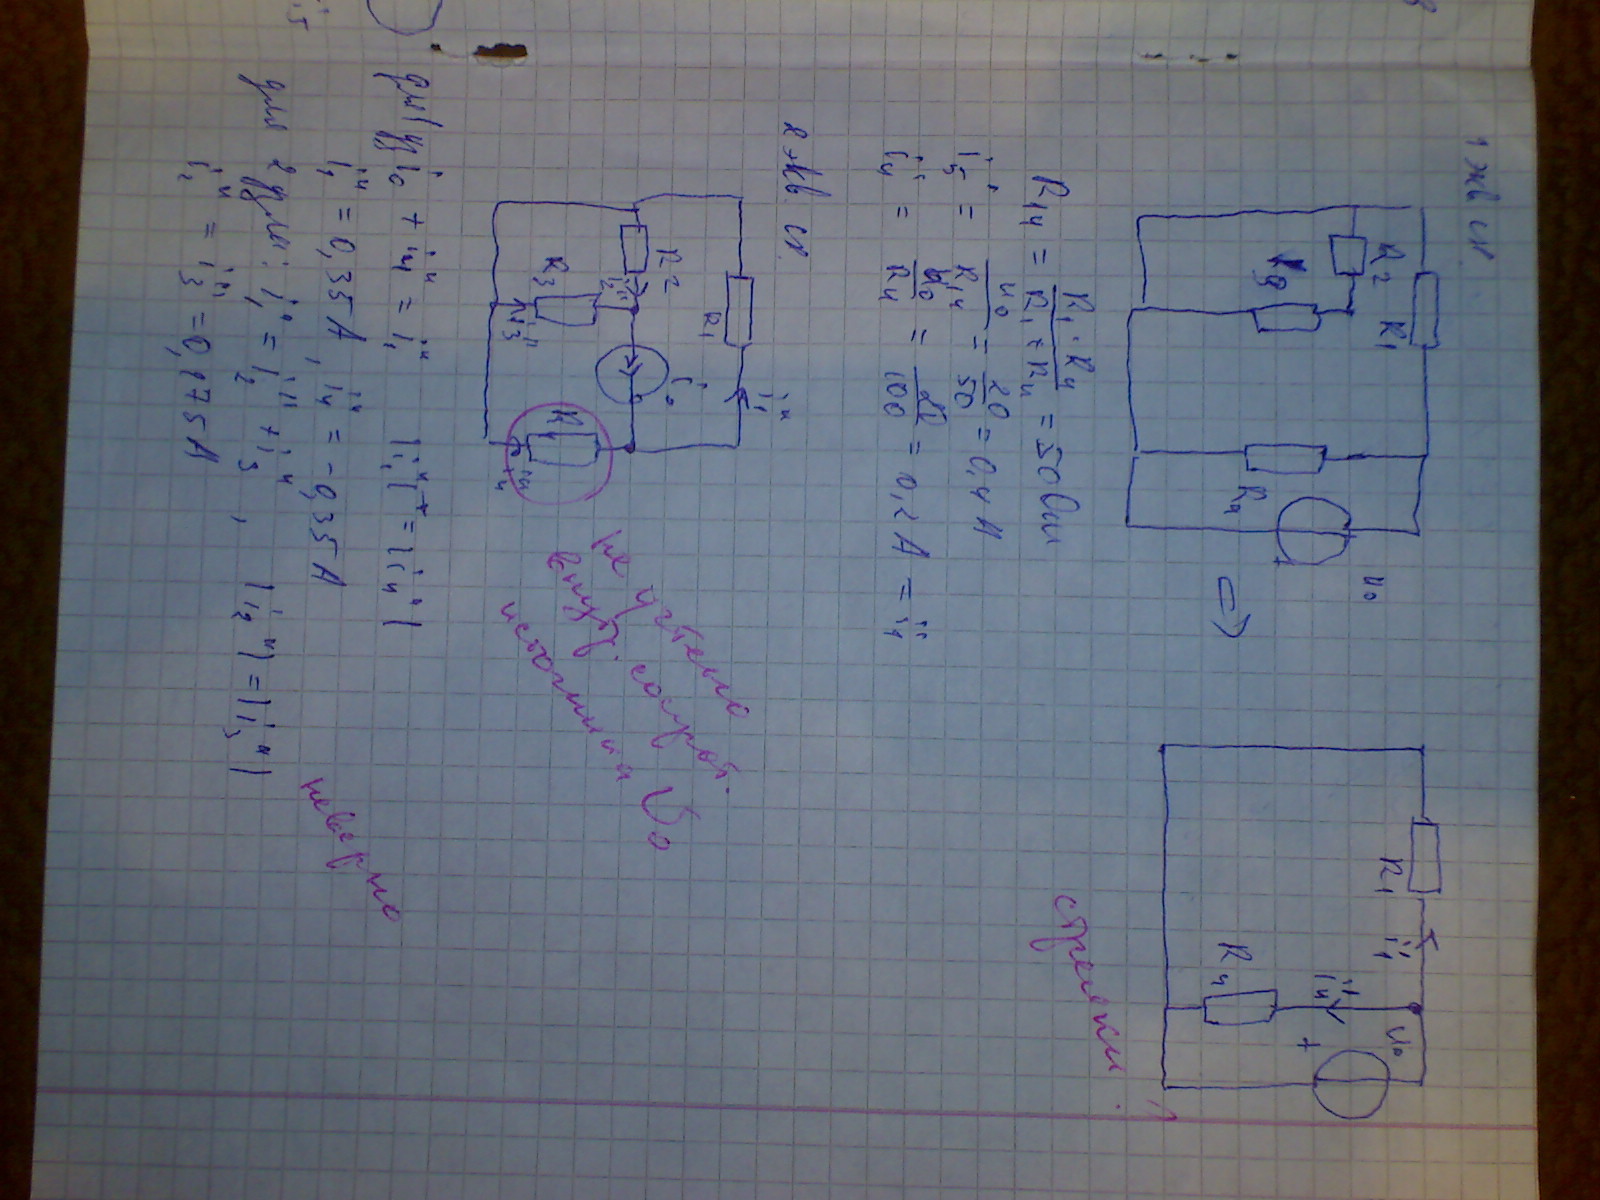 1 экв сх.
R2
R1
R3
R4
U0
=>
R1
i1'
R4
i4'
U0
+
стрелки!
R14 = R1·R4 / R1+R4 = 50 Ом
i5' = U0 / R14 = 20 / 50 = 0,4 А
i4' = U0 / R4 = 20 / 100 = 0,2 А = i1'
2 экв сх.
R1
i1"
R2
i2"
i0
R3
i3"
R4
i4"
не учтено
внутр. сопрот.
источника U0
для 1 узла i0 + i4" = i1" |i1"| = |i4"|
i1" = 0,35 А, i4" = -0,35 А
для 2 узла: i1" = i2" + i3", |i2"| = |i3"|
i2" = i3" = 0,175 А
неверно